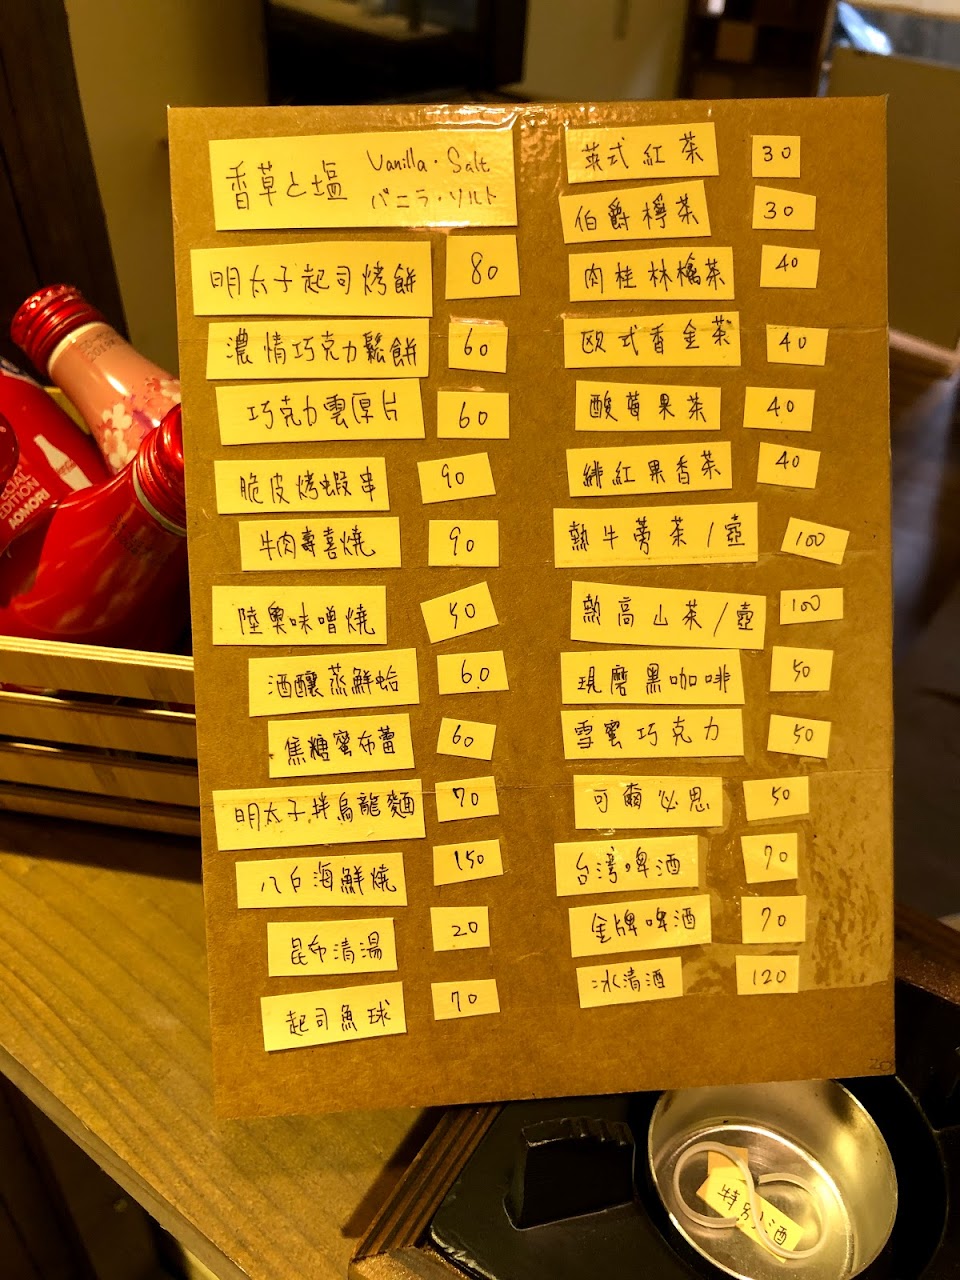 香草と塩 Vanilla・Salt
バニラ・ソルト
明太子起司烤餅 80
濃情巧克力鬆餅 60
巧克力雲厚片 60
脆皮烤蝦串 90
牛肉壽喜燒 90
陸奧味噌燒 50
酒釀蒸鮮蛤 60
焦糖蜜布蕾 60
明太子拌烏龍麵 70
八台海鮮燒 150
昆布清湯 20
起司魚球 70
英式紅茶 30
伯爵檸茶 30
肉桂林檎茶 40
欧式香金茶 40
酸莓果茶 40
緋紅果香茶 40
熱牛蒡茶/壺 100
熱高山茶/壺 100
現磨黑咖啡 50
雪蜜巧克力 50
可爾必思 50
台湾啤酒 70
金牌啤酒 70
冰清酒 120
特別酒
Coca-Cola
SPECIAL
EDITION
AOMORI